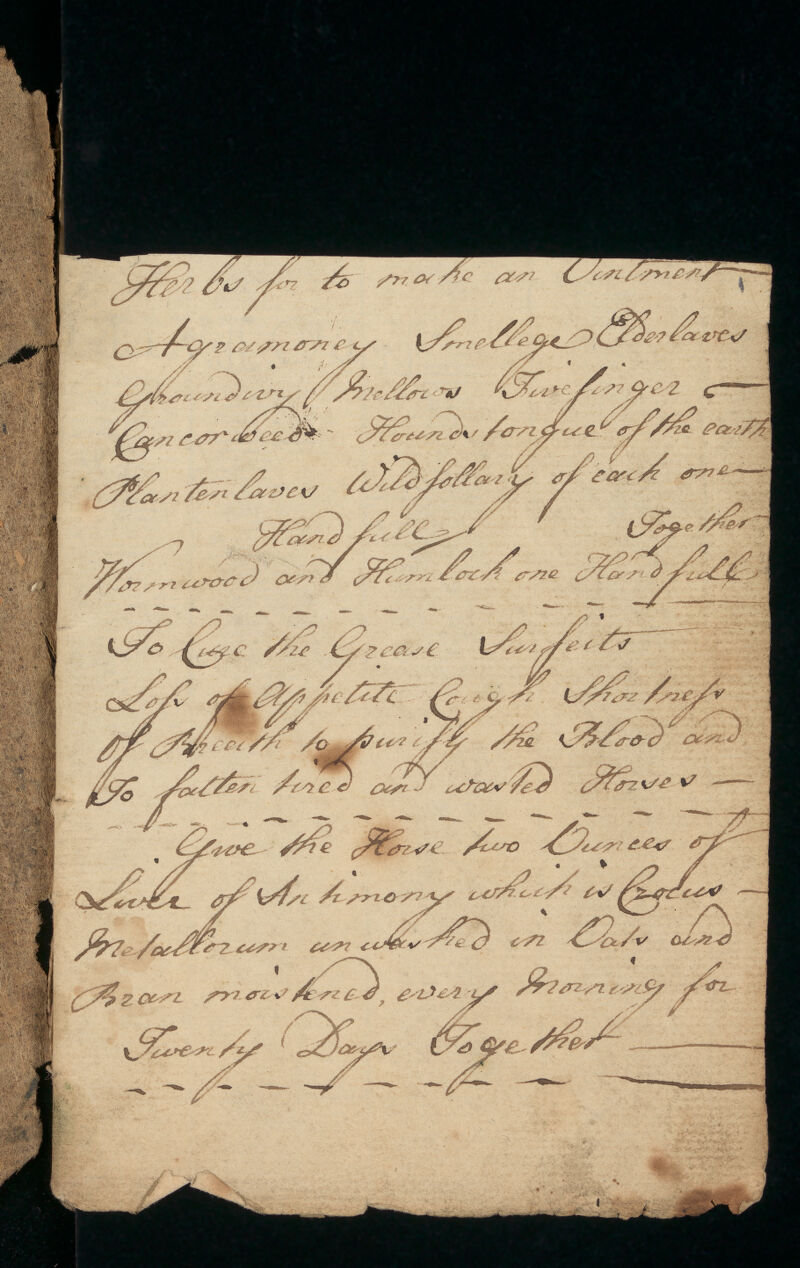 Herbs for to make an Ointment
Agramoney Smellege Elderlaves
Groundivy Mellows Fivefinger
Cancorweed Houndstongue of the earth
Plantenlaves Wild sollary of each one
Handfull Together
Wormwood and Humlock one Handfull
To Cure the Grease Surfeits
Loss of Appetite Cough Shortness
Of Breath to purify the Blood and
To fatten tired and wasted Horses
Give the Horse two Ounces of
Liver of Antimony which is Crocus
Metallorum unwashed in Oats and
Bran moistened, every Morning for
Twenty Days Together